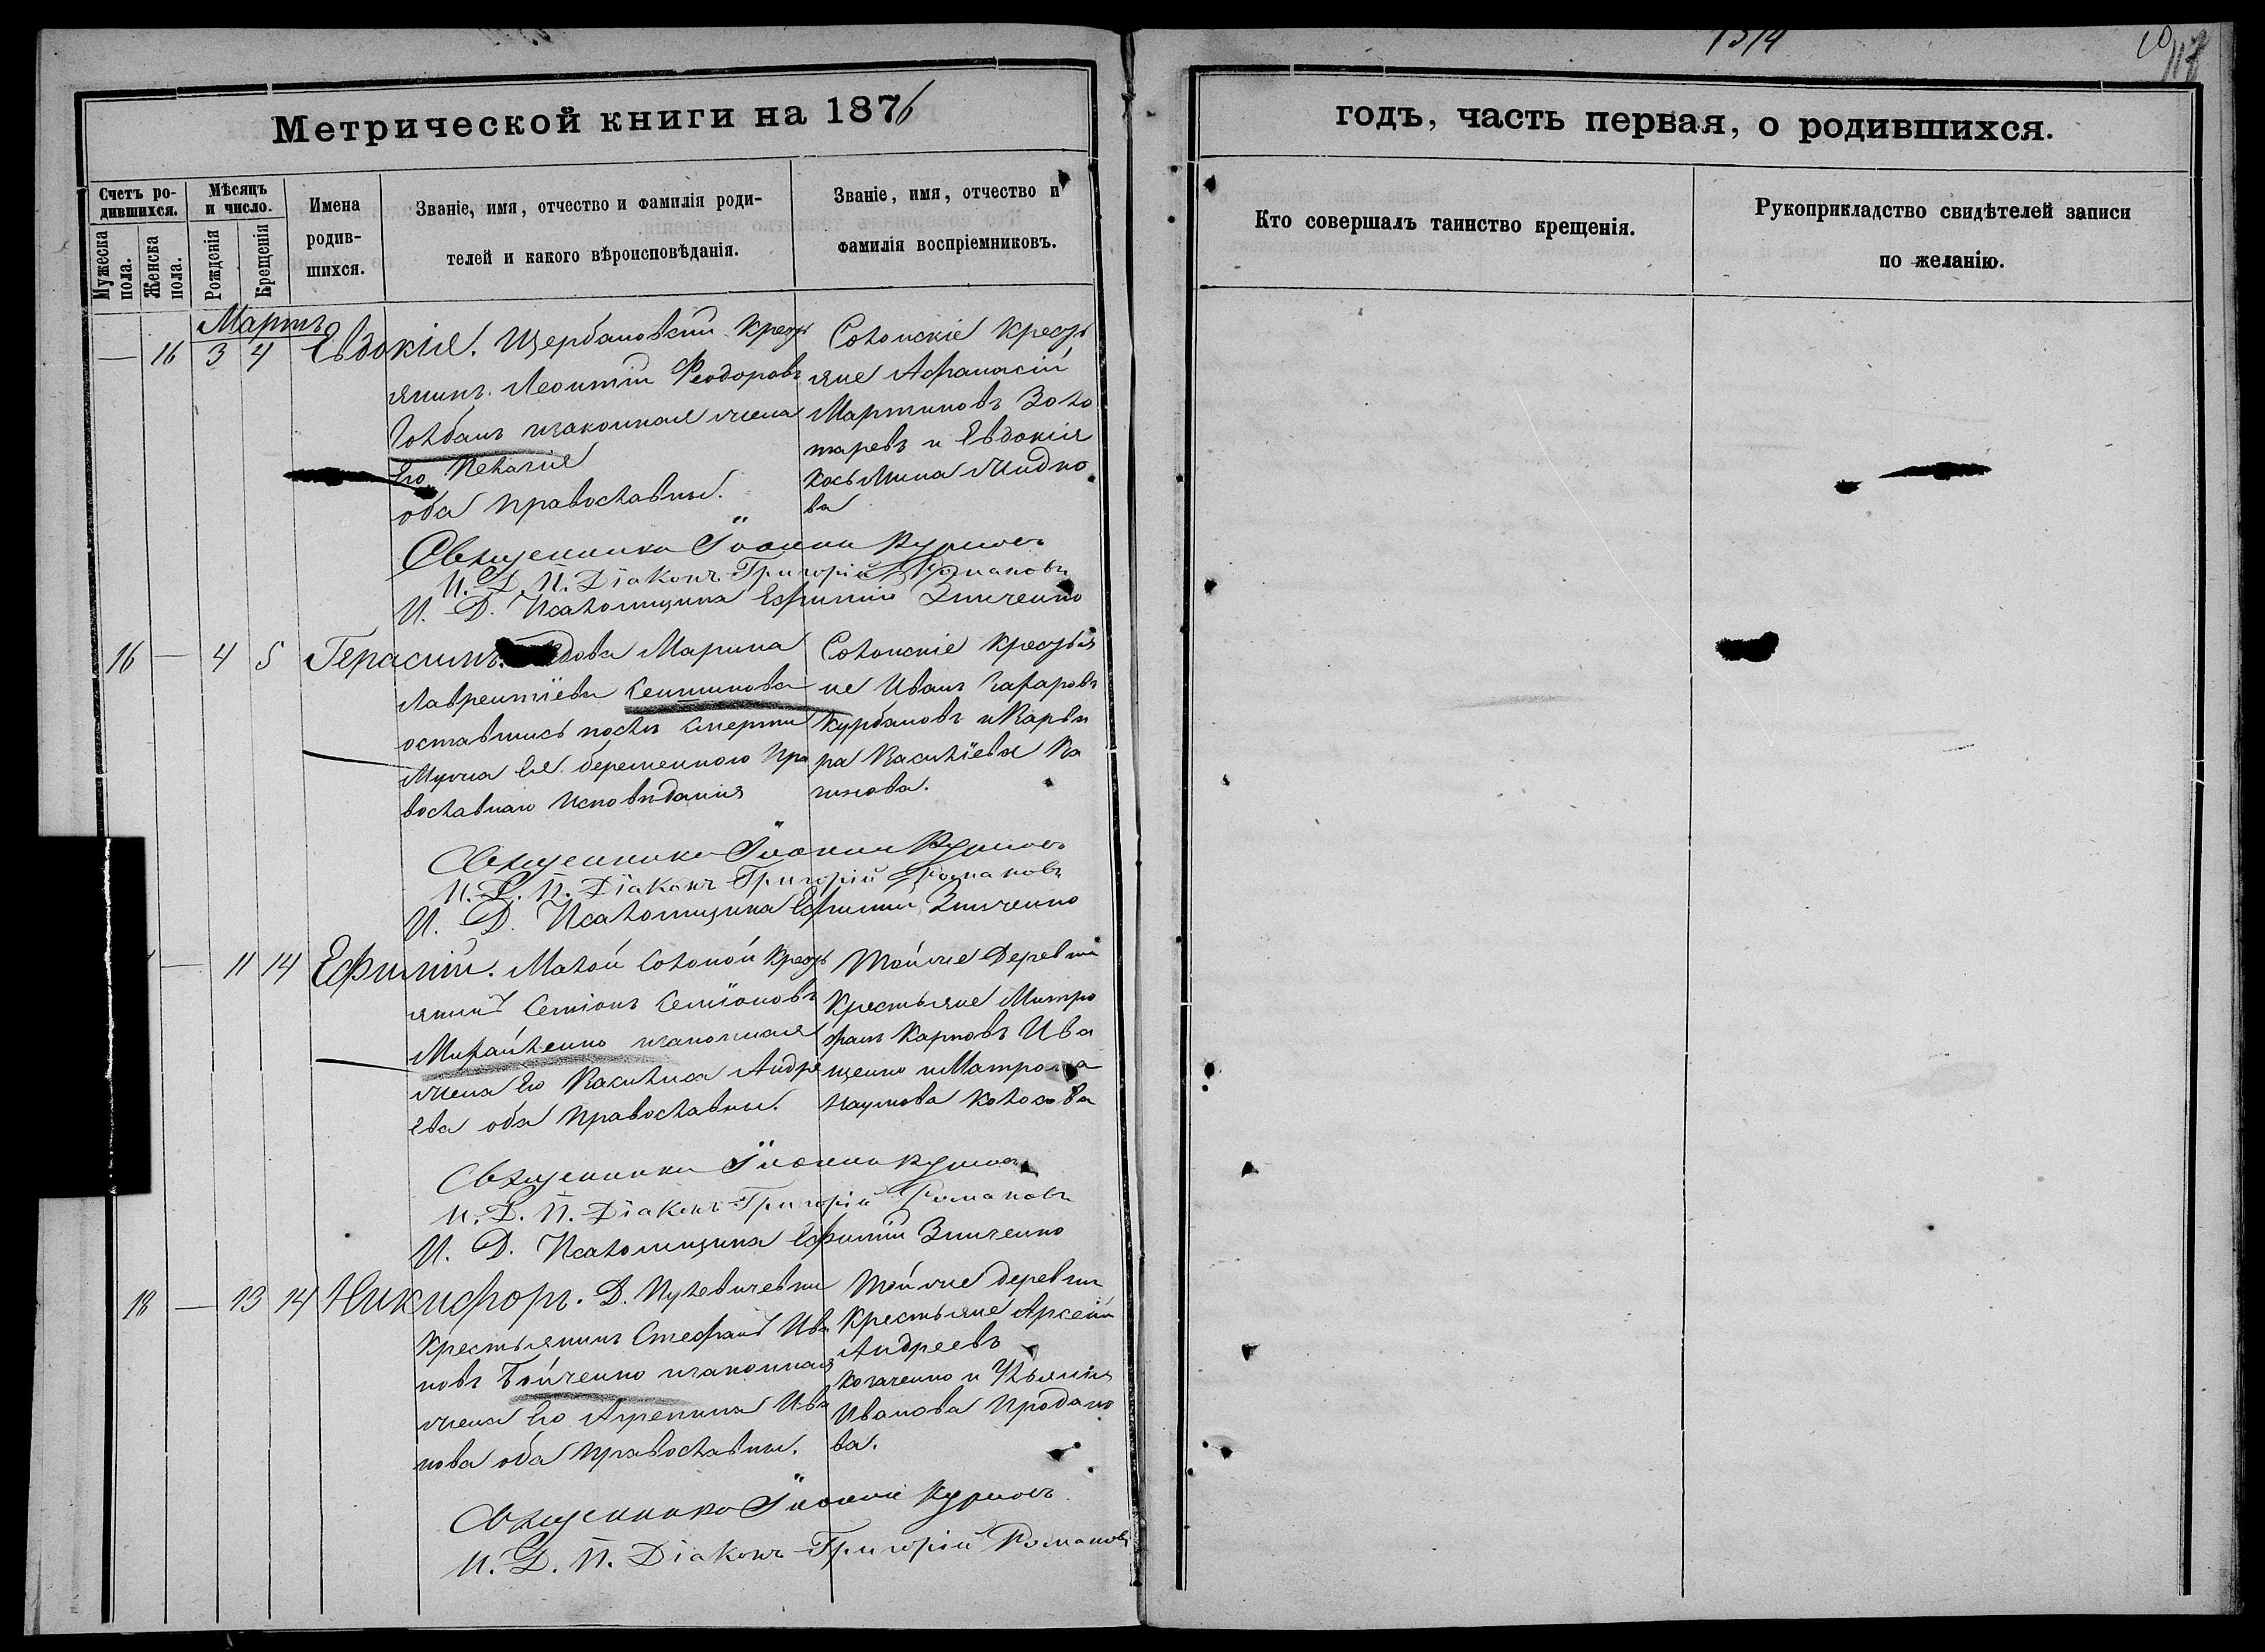 1314
10
117
Метрической книги на 1876
годъ, часть первая, о родившихся.
Счетъ ро-
дившихся.
Мужеска
пола.
Женска
пола.
Мѣсяцъ
и число.
Рожденія
Крещенія
Имена
родив-
шихся.
Званіе, имя, отчество и фамилія роди-
телей и какого вѣроисповѣданія.
Званіе, имя, отчество и
фамилія воспріемниковъ.
Кто совершалъ таинство крещенія.
Рукоприкладство свидѣтелей записи
по желанію.
Мартъ
— 16 3 4 Евдокія.
Щербановскій Кресть
янинъ Леонтій Феодоровъ
Голбанъ изаконная жена
Его Пелагія
оба православны.
Солонскіе Кресть
яне Афанасій
Мартиновъ Золо
таревъ и Евдокія
Косьмина
ва
Священникъ Іоаннъ
И. Д. П. Діаконъ Григорій Романовъ
И. Д. Псаломщика Ефимій Зинченко
16 — 4 5 Герасимъ.
вдова Марина
Лаврентіева
оставшись послѣ смерти
Мужа Ея беременною Пра
вославнаго Исповѣданія
Солонскіе Крестья
не Иванъ Захаровъ
Курбановъ и Варва
ра Василіева Ка
Священникъ Іоаннъ
И. Д. П. Діаконъ Григорій Романовъ
И. Д. Псаломщика Ефимій Зинченко
— 11 14 Ефимій.
Малой Солоной Кресть
янинъ Семіонъ Семіоновъ
Михайленко изаконная
жена Его Василиса Андре
ева оба Православны.
Той же Деревни
Крестьяне Митро
фанъ Карповъ Ива
щенко и Матрона
Наумова Колосова
Священникъ Іоаннъ
И. Д. П. Діаконъ Григорій Романовъ
И. Д. Псаломщика Ефимій Зинченко
18 — 13 14 Никифоръ.
Д. Пужевичевки
Крестьянинъ Стефанъ Ива
новъ Бойченко изаконная
жена Его Агрепина Ива
нова оба Православны.
Той же деревни
Крестьяне Арсеній
Андреевъ
и Ульянія
Иванова Продано
ва.
Священникъ Іоаннъ
И. Д. П. Діаконъ Григорій Романовъ